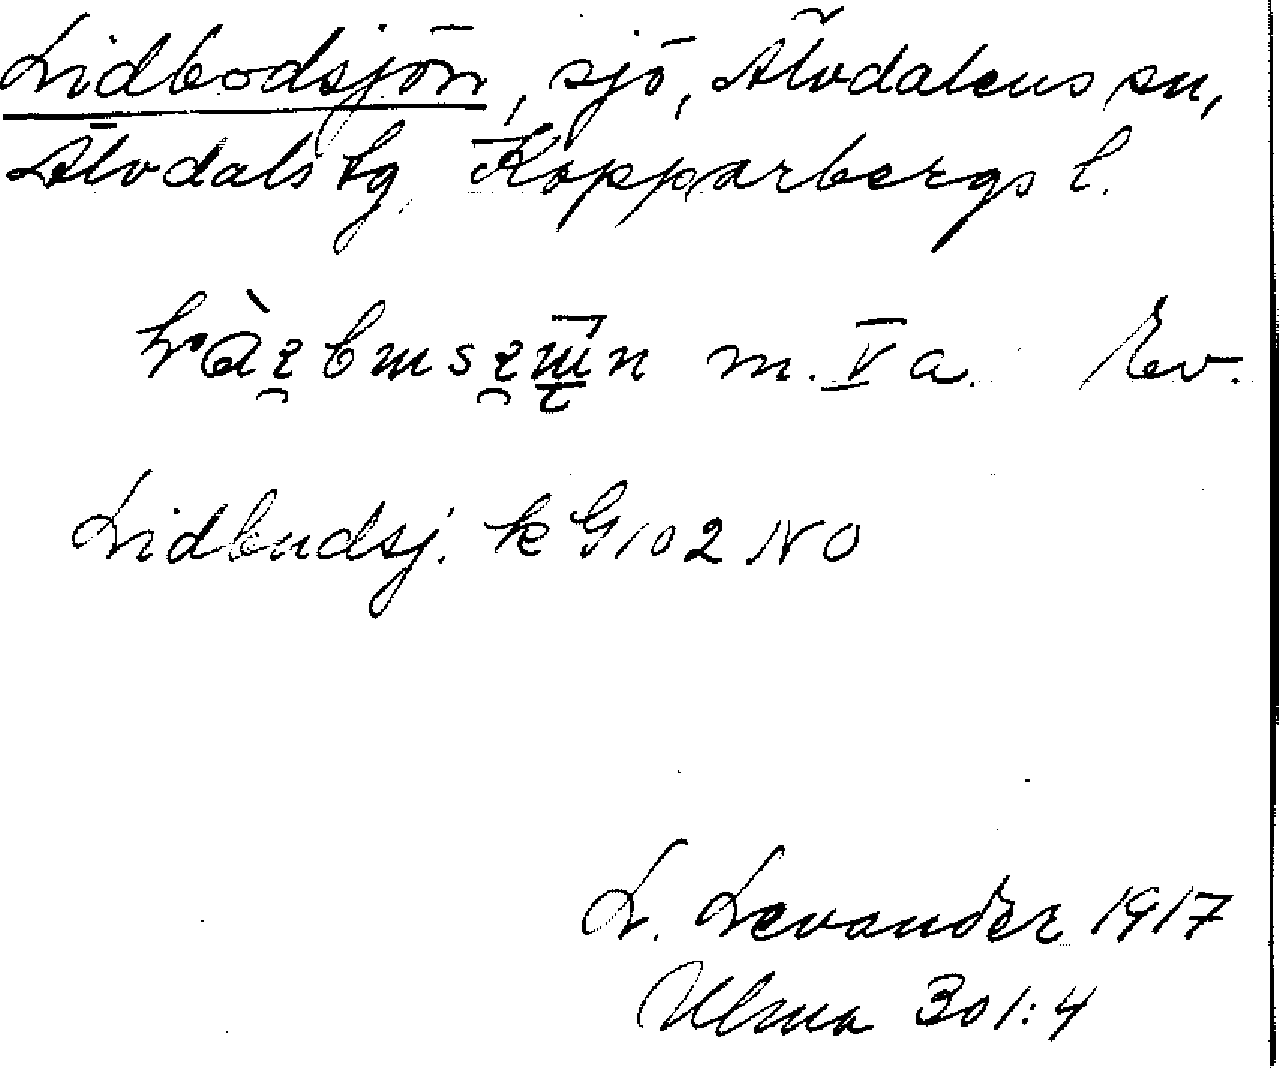 Lidbodsjön, sjö, Älvdalens sn,
Älvdals tg, Kopparbergs l.
m. V a. Lev.
Lidbudsj. k G 102 NO
L. Levander 1917
Ulma 301:4